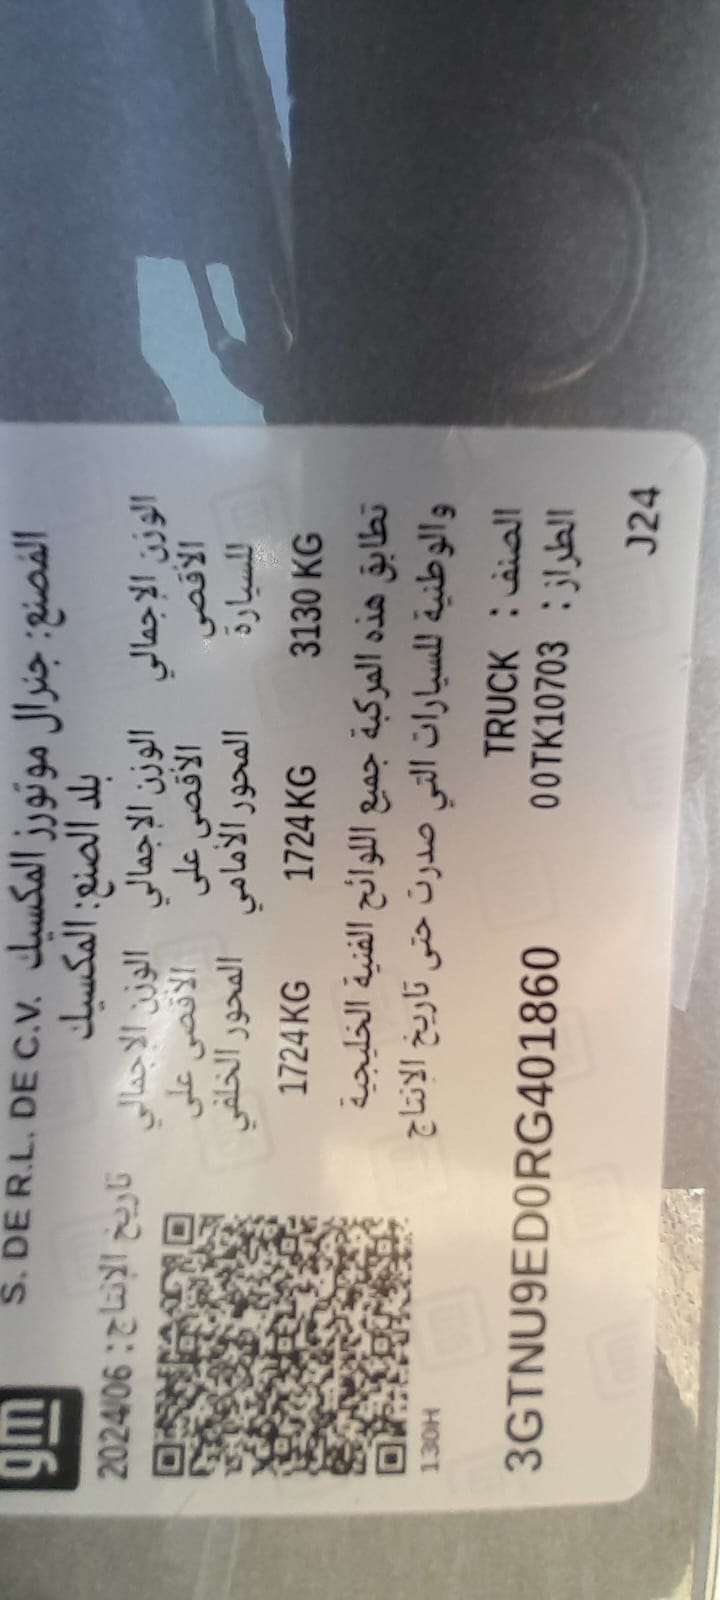 gm
المصنع: جنرال موتورز المكسيك S. DE R.L. DE C.V.
بلد الصنع: المكسيك
تاريخ الإنتاج: 2024/06
الوزن الإجمالي الأقصى للسيارة
3130 KG
الوزن الإجمالي الأقصى على المحور الأمامي
1724 KG
الوزن الاجمالي الأقصى على المحور الخلفي
1724 KG
تطابق هذه المركبة جميع اللوائح الفنية الخليجية
والوطنية للسيارات التي صدرت حتى تاريخ الانتاج
130H
الصنف: TRUCK
3GTNU9ED0RG401860
الطراز: 00TK10703
J24